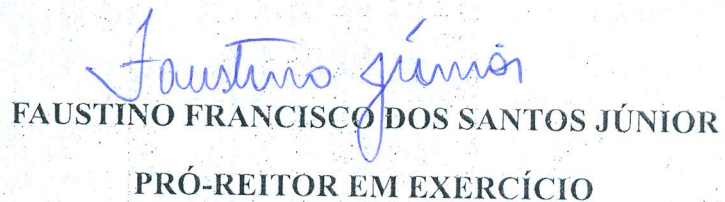 Faustino Júnior
FAUSTINO FRANCISCO DOS SANTOS JÚNIOR
PRÓ-REITOR EM EXERCÍCIO